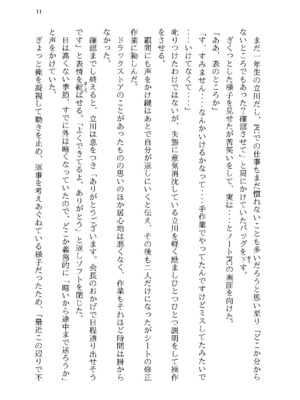 11
まだ一年生の立川だし、PCでの仕事もまだ慣れないことも多いだろうと思い至り「どこか分から
ないところでもあった？確認させて」と肩にかけていたバッグを下ろす。
ぎくっとした様子を見せたが苦笑いをして、実は…とノートPCの画面を向けた。
「ああ、表のところか」
「す、すみません…なんかいけるかなって…手作業でやってたんですけどミスしてたみたいで
…いけてなくて…」
叱りつけたわけではないが、失態に意気消沈している立川を軽く励ましひとつひとつ説明をして操作
を覚えさせる。
顧問にも声をかけ鍵はあとで自分が返しにいくと伝え、その後も二人だけになったがシートの修正
作業に勤しんだ。
ドラッグストアのことがあったものの思いのほか居心地は悪くなく、作業もそれほど時間は掛から
ず確認まで終えると、立川は息をつき「ありがとうございます。会長のおかげで日程通り出せそう
です」と表情を綻ばせる。「よくできてるよ。ありがとう」と返しソフトを閉じた。
日は高くない季節。すでに外は暗くなっていたので、どこか義務的に「暗いから途中まで送ろうか」
と声をかけていた。
ぎょっと俺を凝視して動きを止め、返事を考えあぐねている様子だったため、「最近この辺りで不